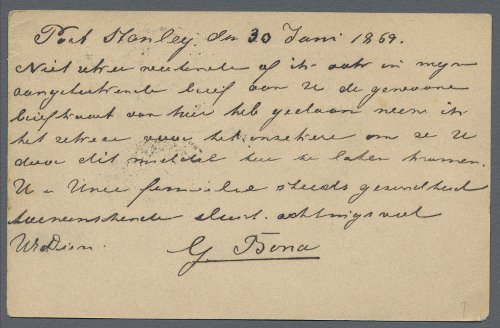 Port Stanley. den 30 Juni 1869.
Niet zeker wetende of ik ook in myn
aangeteekende brief aan U de gewone
briefkaart van hier heb gedaan neem ik
het zekere voor het onzekere om ze U
door dit middel toe te laten komen.
U en Uwe familie steeds gezondheid
toewenschende sluit. achtingsvol
UwDien.
G. Bona